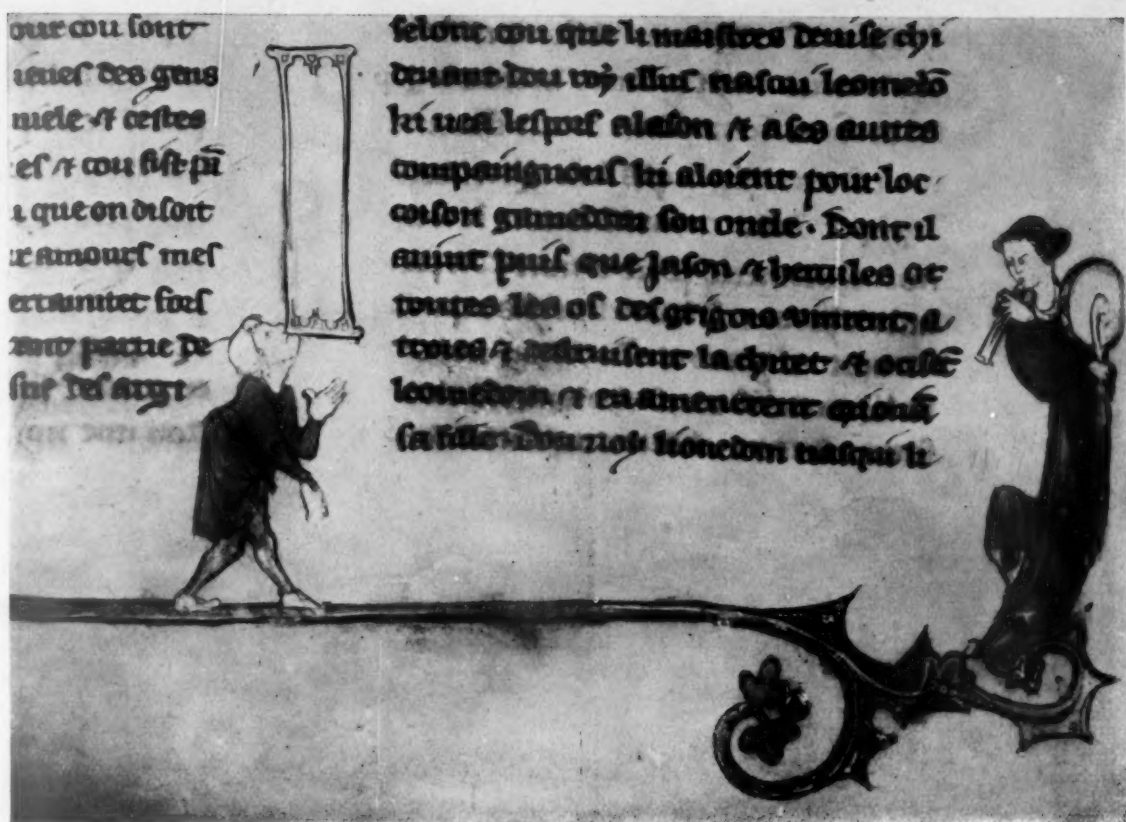 our cou sont
ieues des gens
niele & cestes
es & cou fist
que on disoit
amours mes
ertainnitet fors
partie de
des argi
selonc cou que li maistres deuise chi
deuant dou roy illus nascui leomedō
ki uea lespors a iason & a ses autres
compaingnons ki aloient pour loc
coison son oncle. Dont il
auint puis que Jason & hercules ot
toutes les os des grigois vinrent a
troies & destruisent la chitet & ocisē
leomedom & en amenerent
sa fille. Dou roy lionedom nasqui li